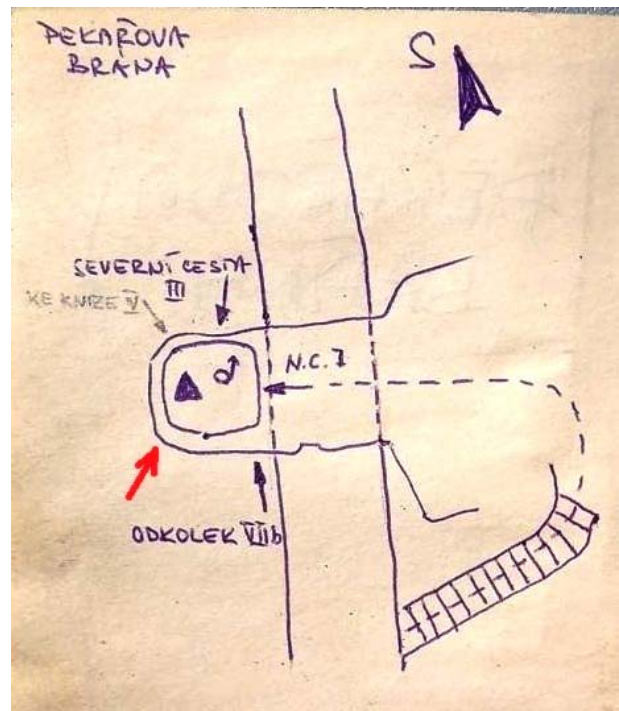 PEKAŘOVA
BRÁNA
S
SEVERNÍ CESTA
III
KE KNIZE V
N.C. I
ODKOLEK VIIb